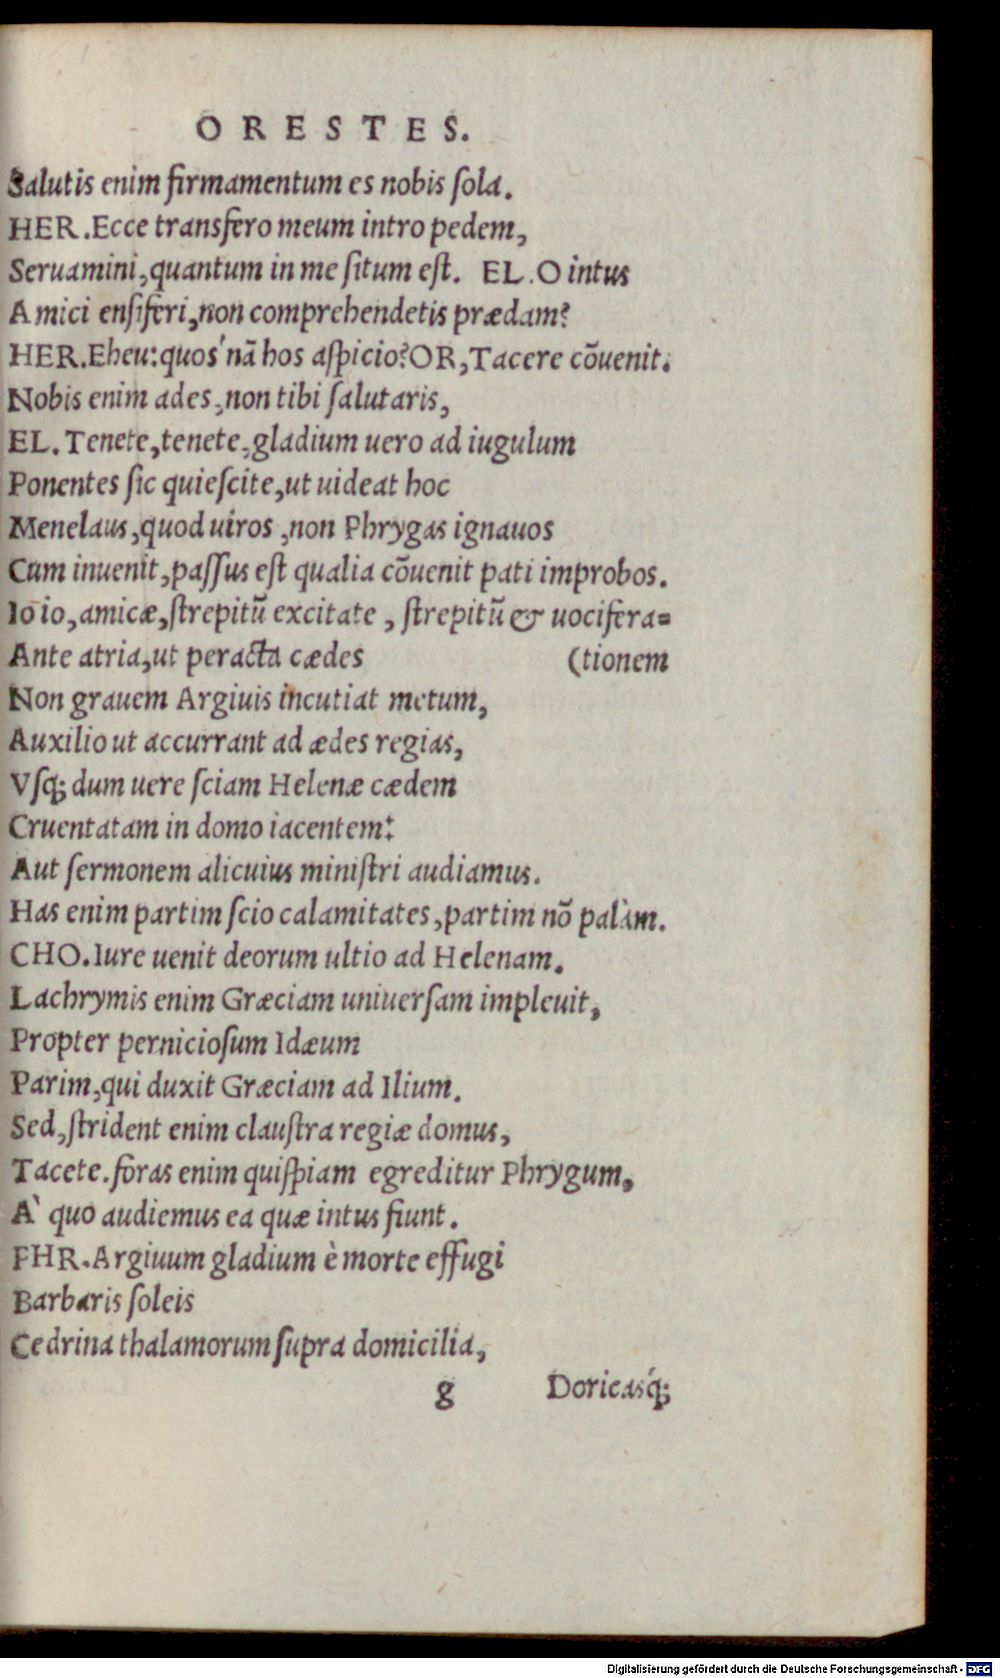 ORESTES.
Salutis enim firmamentum es nobis ſola.
HER.Ecce transfero meum intro pedem,
Seruamini,quantum in me ſitum eſt. EL.O intus
Amici enſiferi,non comprehendetis prædam?
HER.Eheu:quos'nā hos aſpicio?OR,Tacere cōuenit.
Nobis enim ades,non tibi ſalutaris,
EL.Tenete,tenete,gladium uero ad iugulum
Ponentes ſic quieſcite,ut uideat hoc
Menelaus,quod uiros ,non Phrygas ignauos
Cum inuenit,paſſus eſt qualia cōuenit pati improbos.
Io io,amicæ,ſtrepitū excitate , ſtrepitū & uocifera=
Ante atria,ut peracta cædes (tionem
Non grauem Argiuis incutiat metum,
Auxilio ut accurrant ad ædes regias,
Vſq; dum uere ſciam Helenæ cædem
Cruentatam in domo iacentem:
Aut ſermonem alicuius miniſtri audiamus.
Has enim partim ſcio calamitates,partim nō palàm.
CHO.Iure uenit deorum ultio ad Helenam.
Lachrymis enim Græciam uniuerſam impleuit,
Propter pernicioſum Idæum
Parim,qui duxit Græciam ad Ilium.
Sed,ſtrident enim clauſtra regiæ domus,
Tacete.foras enim quiſpiam egreditur Phrygum,
A` quo audiemus ea quæ intus fiunt.
PHR.Argiuum gladium è morte effugi
Barbaris ſoleis
Cedrina thalamorum ſupra domicilia,
g Doricasq́;
Digitalisierung gefördert durch die Deutsche Forschungsgemeinschaft - DFG